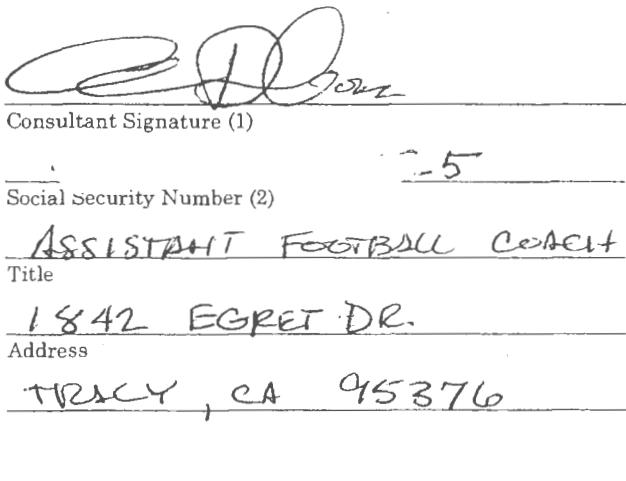 Consultant Signature (1)
-5
Social Security Number (2)
ASSISTANT FOOTBALL COACH
Title
1842 EGRET DR.
Address
TRACY, CA 95376